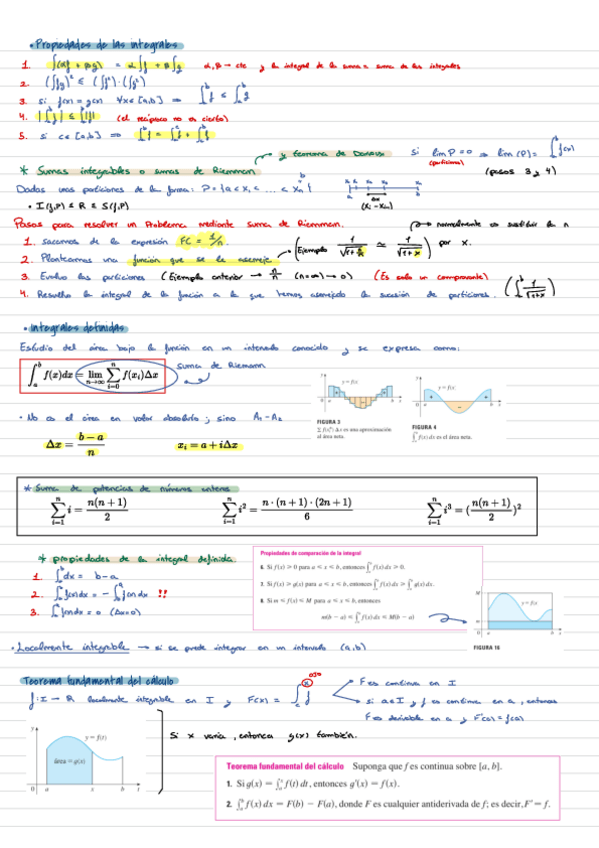 • Propiedades de las integrales
1. ∫(αf + βg) = α∫f + β∫g α, β → cte y la integral de la suma = suma de las integrales
2. (∫fg)² ≤ (∫f²)·(∫g²)
3. si f(x) = g(x) ∀x∈[a,b] ⇒ ∫ₐᵇ f ≤ ∫ₐᵇ g
4. |∫ₐᵇ f| ≤ ∫ₐᵇ |f| (el recíproco no es cierto)
5. si c∈[a,b] ⇒ ∫ₐᵇ f = ∫ₐᶜ f + ∫ f
y teorema de Darboux si lim P = 0 ⇒ lim (P) = ∫ₐᵇ f(x)
(particiones) (pasos 3 y 4)
* Sumas integrables o sumas de Riemman
Dadas unas particiones de la forma: P = {a < x₁ < ... < xₙ}
• I(f,P) ≤ R ≤ S(f,P)
Pasos para resolver un Problema mediante suma de Riemman. normalmente es sustituir la n por x.
1. sacamos de la expresión FC = 1/n.
2. Planteamos una función que se le asemeje (Ejemplo 1/√(1+n/n) ≃ 1/√(1+x))
3. Evaluo las particiones (Ejemplo anterior → n/n (n=∞) → 0) (Es solo un comprobante)
4. Resuelvo la integral de la función a la que hemos asemejado la sucesión de particiones. (∫ 1/√(1+x))
• Integrales definidas
Estudio del área bajo la función en un intervalo conocido y se expresa como:
∫ₐᵇ f(x)dx = lim n→∞ Σ i=0 n f(xᵢ)Δx suma de Riemann
• No es el área en valor absoluto, sino A₁-A₂
Δx = (b − a)/n xᵢ = a + iΔx
y = f(x)
FIGURA 3
Σ f(xᵢ*) Δx es una aproximación
al área neta.
y = f(x)
FIGURA 4
∫ₐᵇ f(x) dx es el área neta.
* Suma de potencias de números enteros
Σ i=1 n i = n(n + 1)/2 Σ i=1 n i² = n · (n + 1) · (2n + 1)/6 Σ i=1 n i³ = (n(n + 1)/2)²
* propiedades de la integral definida
1. ∫ₐᵇ dx = b-a
2. ∫ₐᵇ f(x)dx = - ∫ f(x)dx !!
3. ∫ₐᵃ f(x)dx = 0 (Δx=0)
Propiedades de comparación de la integral
6. Si f(x) ≥ 0 para a ≤ x ≤ b, entonces ∫ₐᵇ f(x) dx ≥ 0.
7. Si f(x) ≥ g(x) para a ≤ x ≤ b, entonces ∫ₐᵇ f(x) dx ≥ ∫ₐᵇ g(x) dx.
8. Si m ≤ f(x) ≤ M para a ≤ x ≤ b, entonces
m(b − a) ≤ ∫ₐᵇ f(x) dx ≤ M(b − a)
y = f(x)
FIGURA 16
• Localmente integrable → si se puede integrar en un intervalo (a,b)
Teorema fundamental del cálculo
f: I → R localmente integrable en I y F(x) = ∫ f
OJO
F es continua en I
si a∈I y f es continua en a, entonces
F es derivable en a y F'(a) = f(a)
Si x varía, entonces g(x) también.
y = f(t)
área = g(x)
0 a x b t
Teorema fundamental del cálculo Suponga que f es continua sobre [a, b].
1. Si g(x) = ∫ₐˣ f(t) dt, entonces g'(x) = f(x).
2. ∫ₐᵇ f(x) dx = F(b) − F(a), donde F es cualquier antiderivada de f; es decir, F' = f.